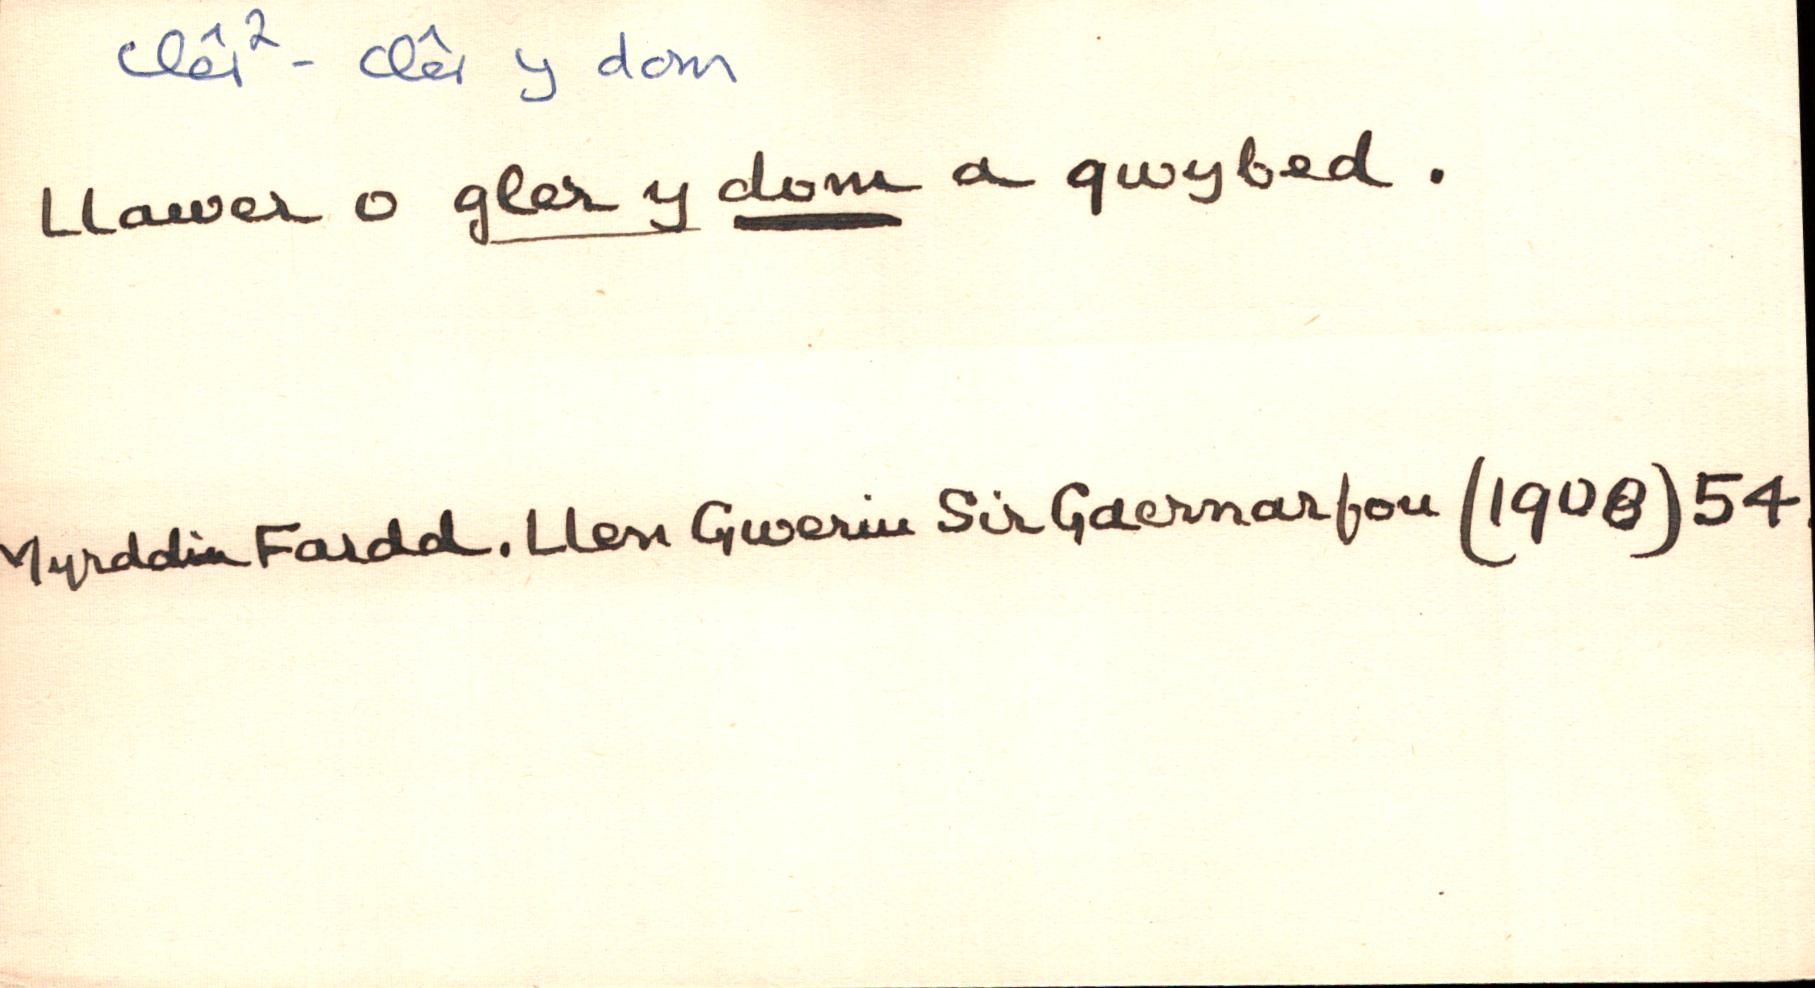 clêr² - clêr y dom
Llawer o gler y dom a gwybed.
Myrddin Fardd. Llen Gwerin Sir Gaernarfon (1908) 54